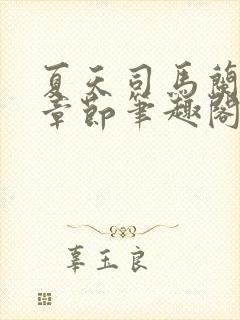 夏天司馬蘭
章節筆趣閣
辜玉良